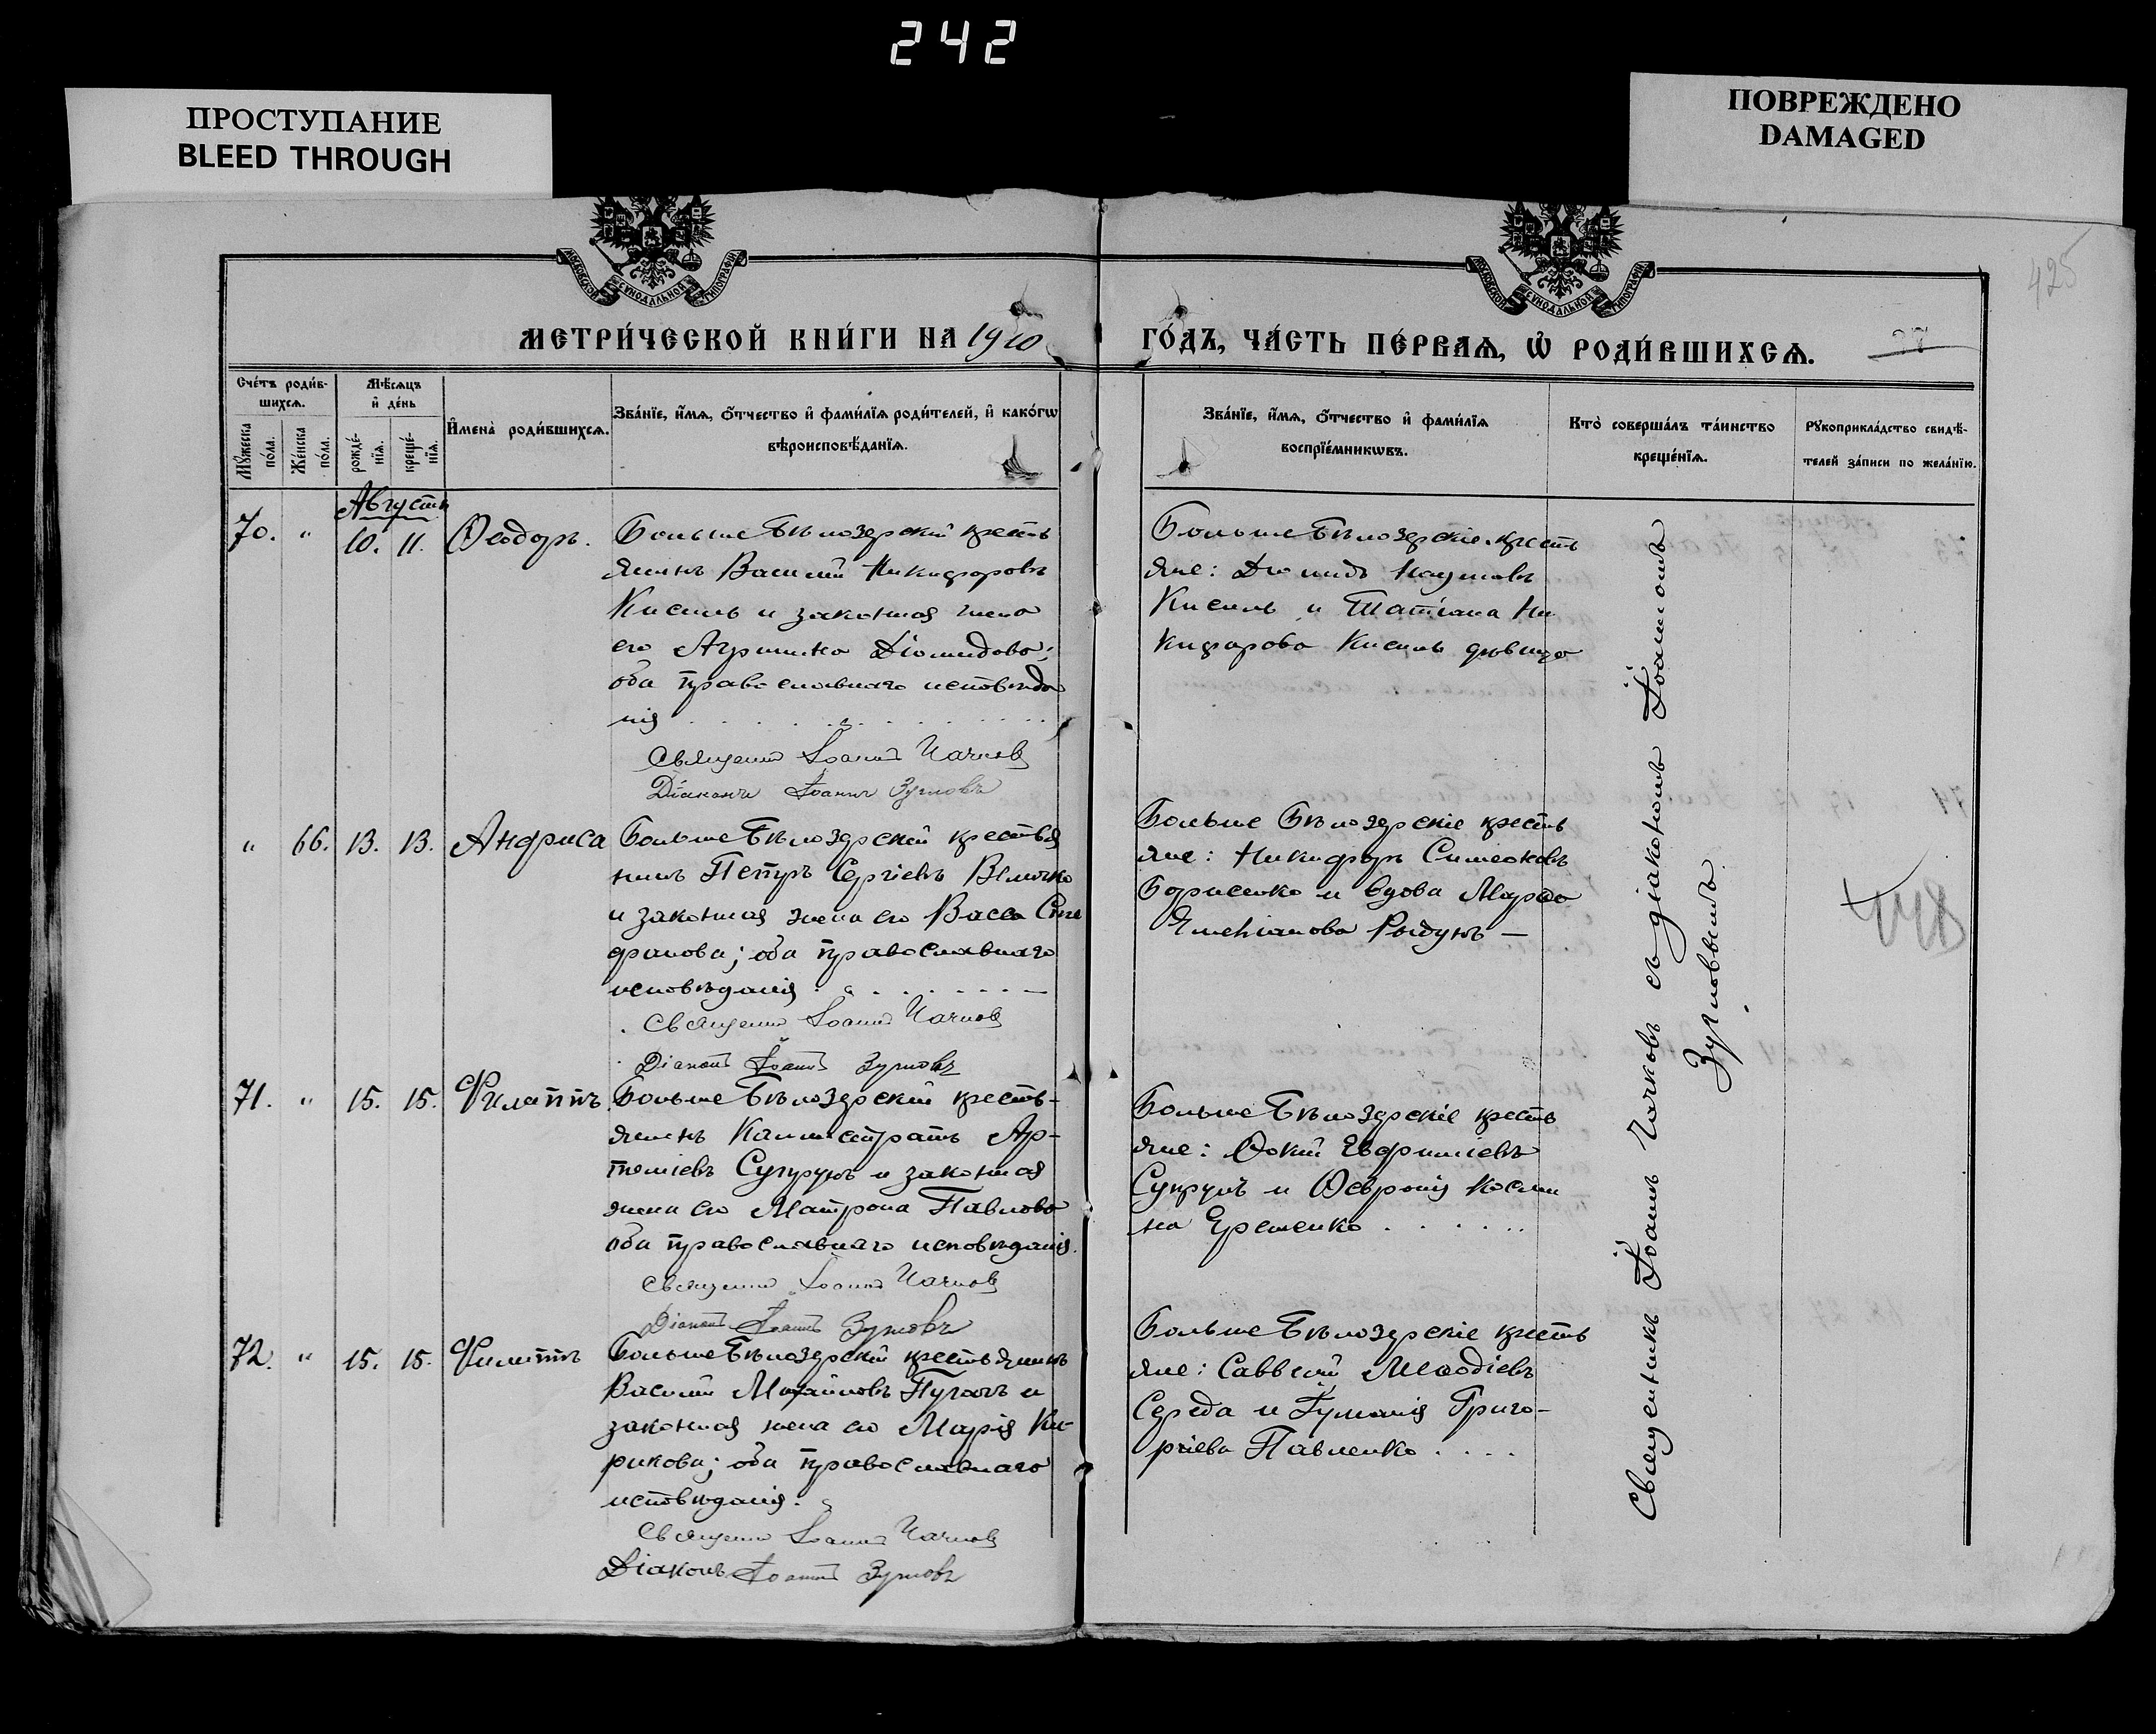 242
ПРОСТУПАНИЕ
BLEED THROUGH
ПОВРЕЖДЕНО
DAMAGED
МОСКОВСКОЙ СУНОДАЛЬНОЙ ТИПОГРАФІИ
МОСКОВСКОЙ СУНОДАЛЬНОЙ ТИПОГРАФІИ
425
МЕТРИ́ЧЕСКОЙ КНИ́ГИ НА 1910
ГО́ДЪ, ЧА́СТЬ ПЕ́РВАѦ, Ѡ҆ РОДИ́ВШИХСѦ.
27
Сче́тъ роди́в-
шихсѧ.
Мꙋ́жеска по́ла.
Же́нска по́ла.
Мѣ́сѧцъ
и҆ де́нь
рожде́-
нїѧ.
креще́-
нїѧ.
И҆мена̀ роди́вшихсѧ.
Зва́нїе, и҆́мѧ, ѻ҆́тчество и҆ фами́лїѧ роди́телей, и҆ како́гѡ
вѣроисповѣ́данїѧ.
Зва́нїе, и҆́мѧ, ѻ҆́тчество и҆ фами́лїѧ
воспрїе́мникѡвъ.
Кто̀ соверша́лъ та́инство
креще́нїѧ.
Рꙋкоприкла́дство свидѣ́-
телей за́писи по жела́нїю.
Августъ
70. " 10. 11. Ѳеодоръ.
Больше Бѣлозерскій кресть
янинъ Василій Никифоровъ
Кисиль и законная жена
его Агрипина Діомидова;
оба православнаго исповѣда
нія
Священн Іоаннъ Чачковъ
Діаконъ Іоаннъ Зуриовъ
Больше Бѣлозерскіе кресть
яне: Діомидъ Наумовъ
Кисиль и Татіана Ни
кифорова Кисиль дѣвица
" 66. 13. 13. Анфиса
Больше Бѣлозерскій крестья
нинъ Петръ Сергіевъ Величко
и законная жена его Васса Сте
фанова; оба православнаго
исповѣданія.
Священн Іоаннъ Чачковъ
Діаконъ Іоаннъ Зуриовъ
Больше Бѣлозерскіе кресть
яне: Никифоръ Симеоновъ
Борисенко и вдова Марфа
Емеліанова
71. " 15. 15. Филиппъ.
Больше Бѣлозерскій кресть-
янинъ Каллистратъ Ар-
теміевъ Супрунъ и законная
жена его Матрона Павлова
оба православнаго исповѣданія.
Священн Іоаннъ Чачковъ
Діаконъ Іоаннъ Зуриовъ
Больше Бѣлозерскіе кресть
яне: Фокій Евфиміевъ
Супрунъ и Февронія Косми
на Еременко
72. " 15. 15. Филиппъ
Больше Бѣлозерскій крестьянинъ
Василій Михайловъ Пугачъ и
законная жена его Марія Ки-
рикова; оба православнаго
исповѣданія.
Священн Іоаннъ Чачковъ
Діаконъ Іоаннъ Зуриовъ
Больше Бѣлозерскіе кресть
яне: Саввстій Меѳодіевъ
Середа и Іуліанія Григо-
ріева Павленко
Священникъ Іоаннъ Чачковъ съ діакономъ Іоанномъ
Зуриовымъ.